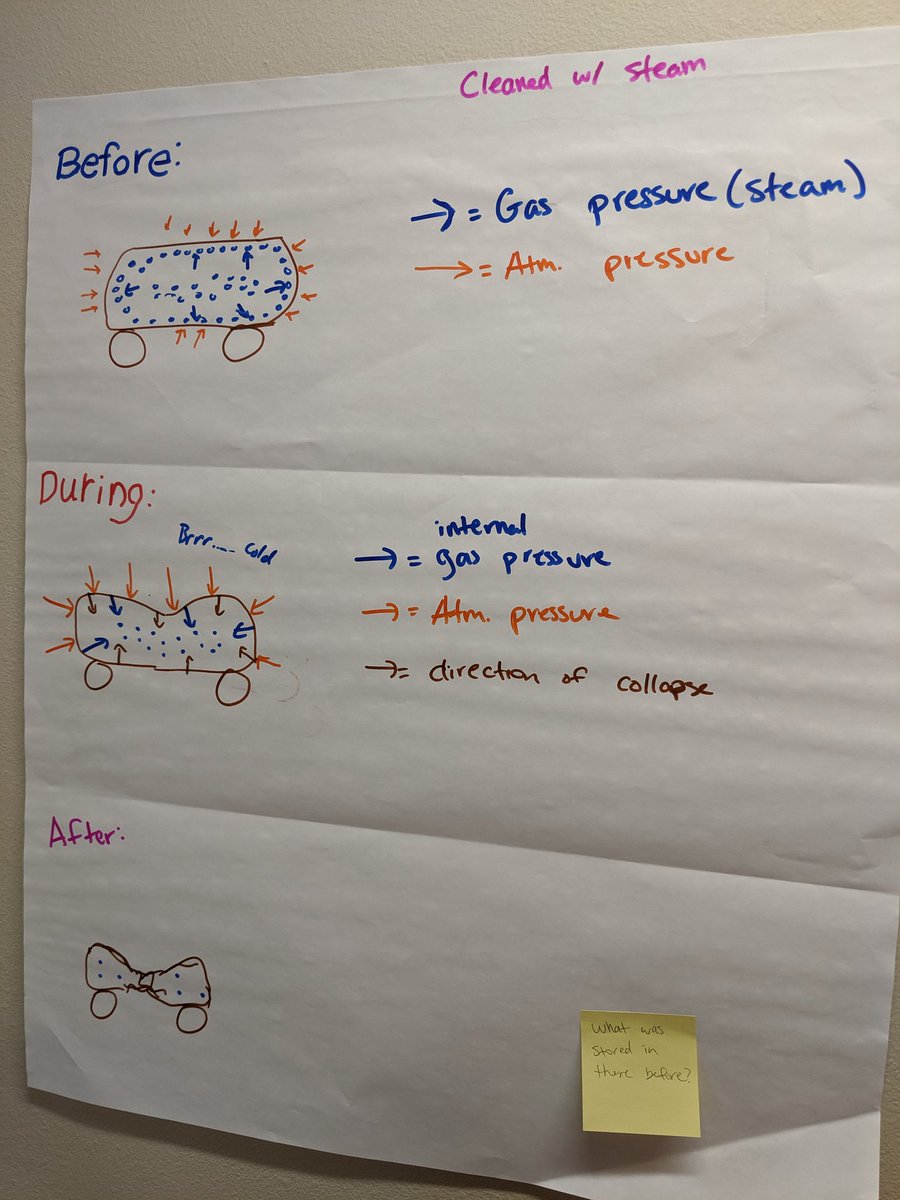 Cleaned w/ steam
Before:
→ = Gas pressure (steam)
→ = Atm. pressure
During:
Brrr.... cold
internal
→ = gas pressure
→ = Atm. pressure
→ = direction of collapse
After:
What was
stored in
there before?